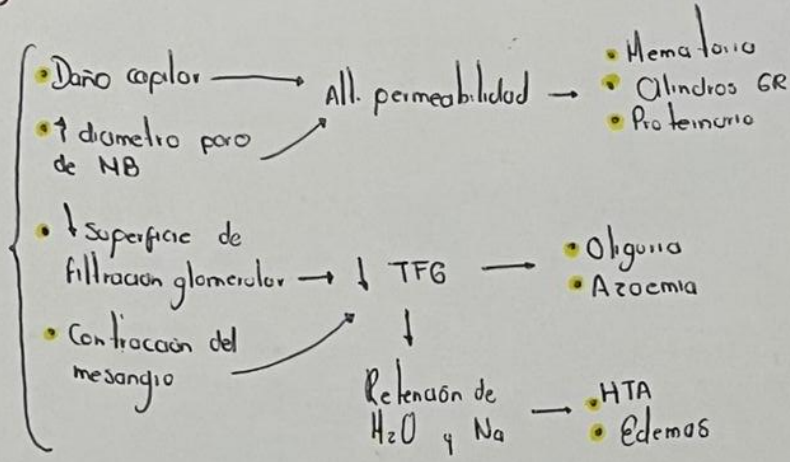 Daño capilar → Alt. permeabilidad → • Hematuria
• Cilindros GR
• Proteinuria
• ↑ diametro poro
de MB
• ↓ Superficie de
filtración glomerular → ↓ TFG → • Oliguria
• Azoemia
• Contracción del
mesangio
↓
Retención de
H₂O y Na → • HTA
• Edemas